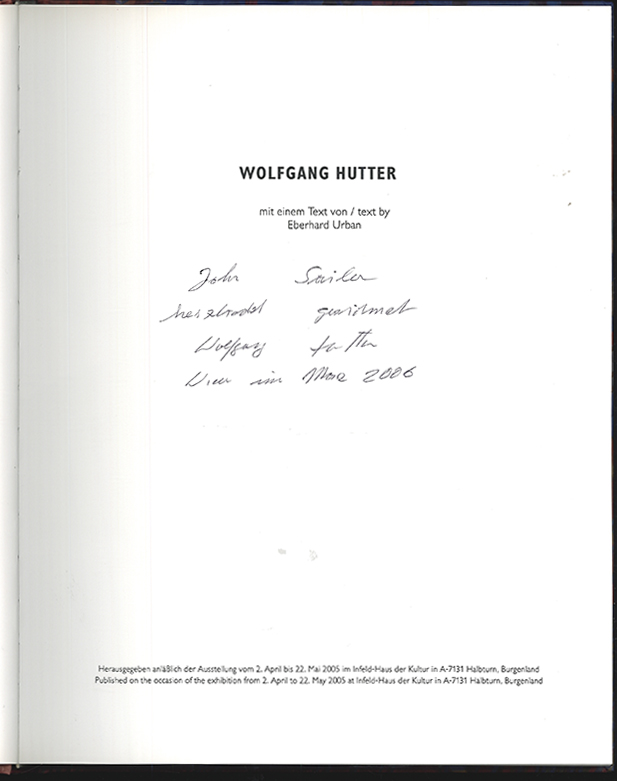 WOLFGANG HUTTER
mit einem Text von / text by
Eberhard Urban
John Sailer
gewidmet
Wolfgang Hutter
Wien im März 2006
Herausgegeben anläßlich der Ausstellung vom 2. April bis 22. Mai 2005 im Infeld-Haus der Kultur in A-7131 Halbturn, Burgenland
Published on the occasion of the exhibition from 2. April to 22. May 2005 at Infeld-Haus der Kultur in A-7131 Halbturn, Burgenland